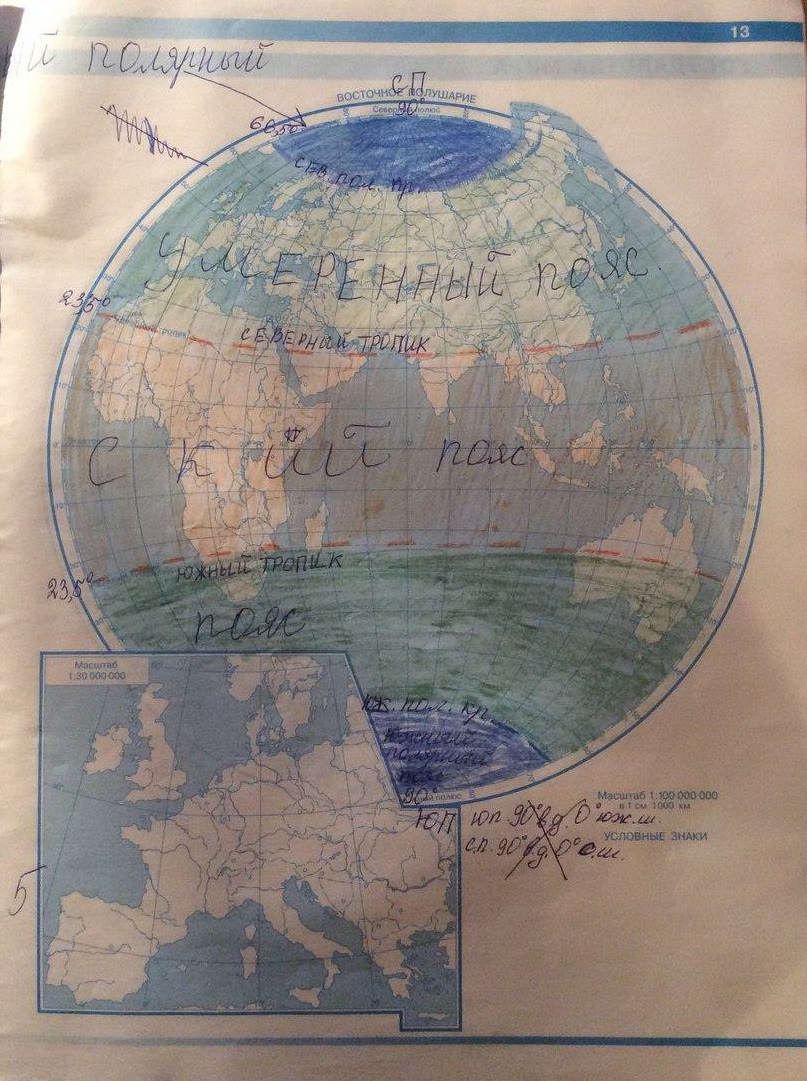 13
ий полярный
С.П
ВОСТОЧНОЕ ПОЛУШАРИЕ
Северный полюс
90°
66,5°
сев. пол. кр.
УМЕРЕННЫЙ ПОЯС.
23,5°
СЕВЕРНЫЙ ТРОПИК
С К ИЙ пояс
ЮЖНЫЙ ТРОПИК
23,5°
пояс
Масштаб
1:30 000 000
юж. пол. кр.
южный
полярный
пояс
90°
ЮП
Масштаб 1:100 000 000
в 1 см 1000 км
Ю.П. 90° в.д. 0° юж.ш.
УСЛОВНЫЕ ЗНАКИ
С.П. 90° в.д. 0° с.ш.
5